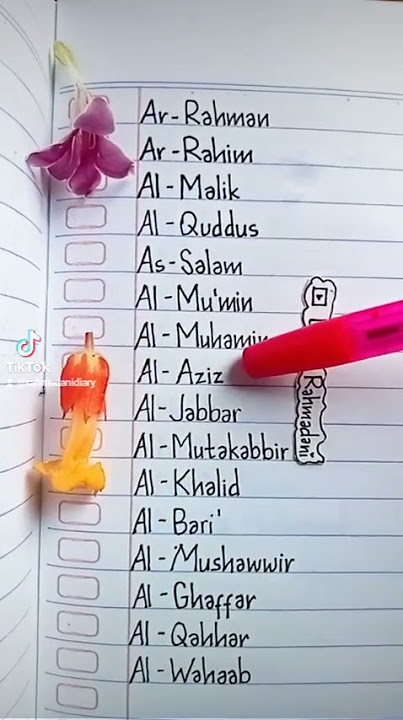 Ar-Rahman
Ar-Rahim
Al-Malik
Al-Quddus
As-Salam
Al-Mu'min
Al-Muhamin
Al-Aziz
Al-Jabbar
Al-Mutakabbir
Al-Khalid
Al-Bari'
Al-Mushawwir
Al-Ghaffar
Al-Qahhar
Al-Wahaab
Rahmadani
TikTok